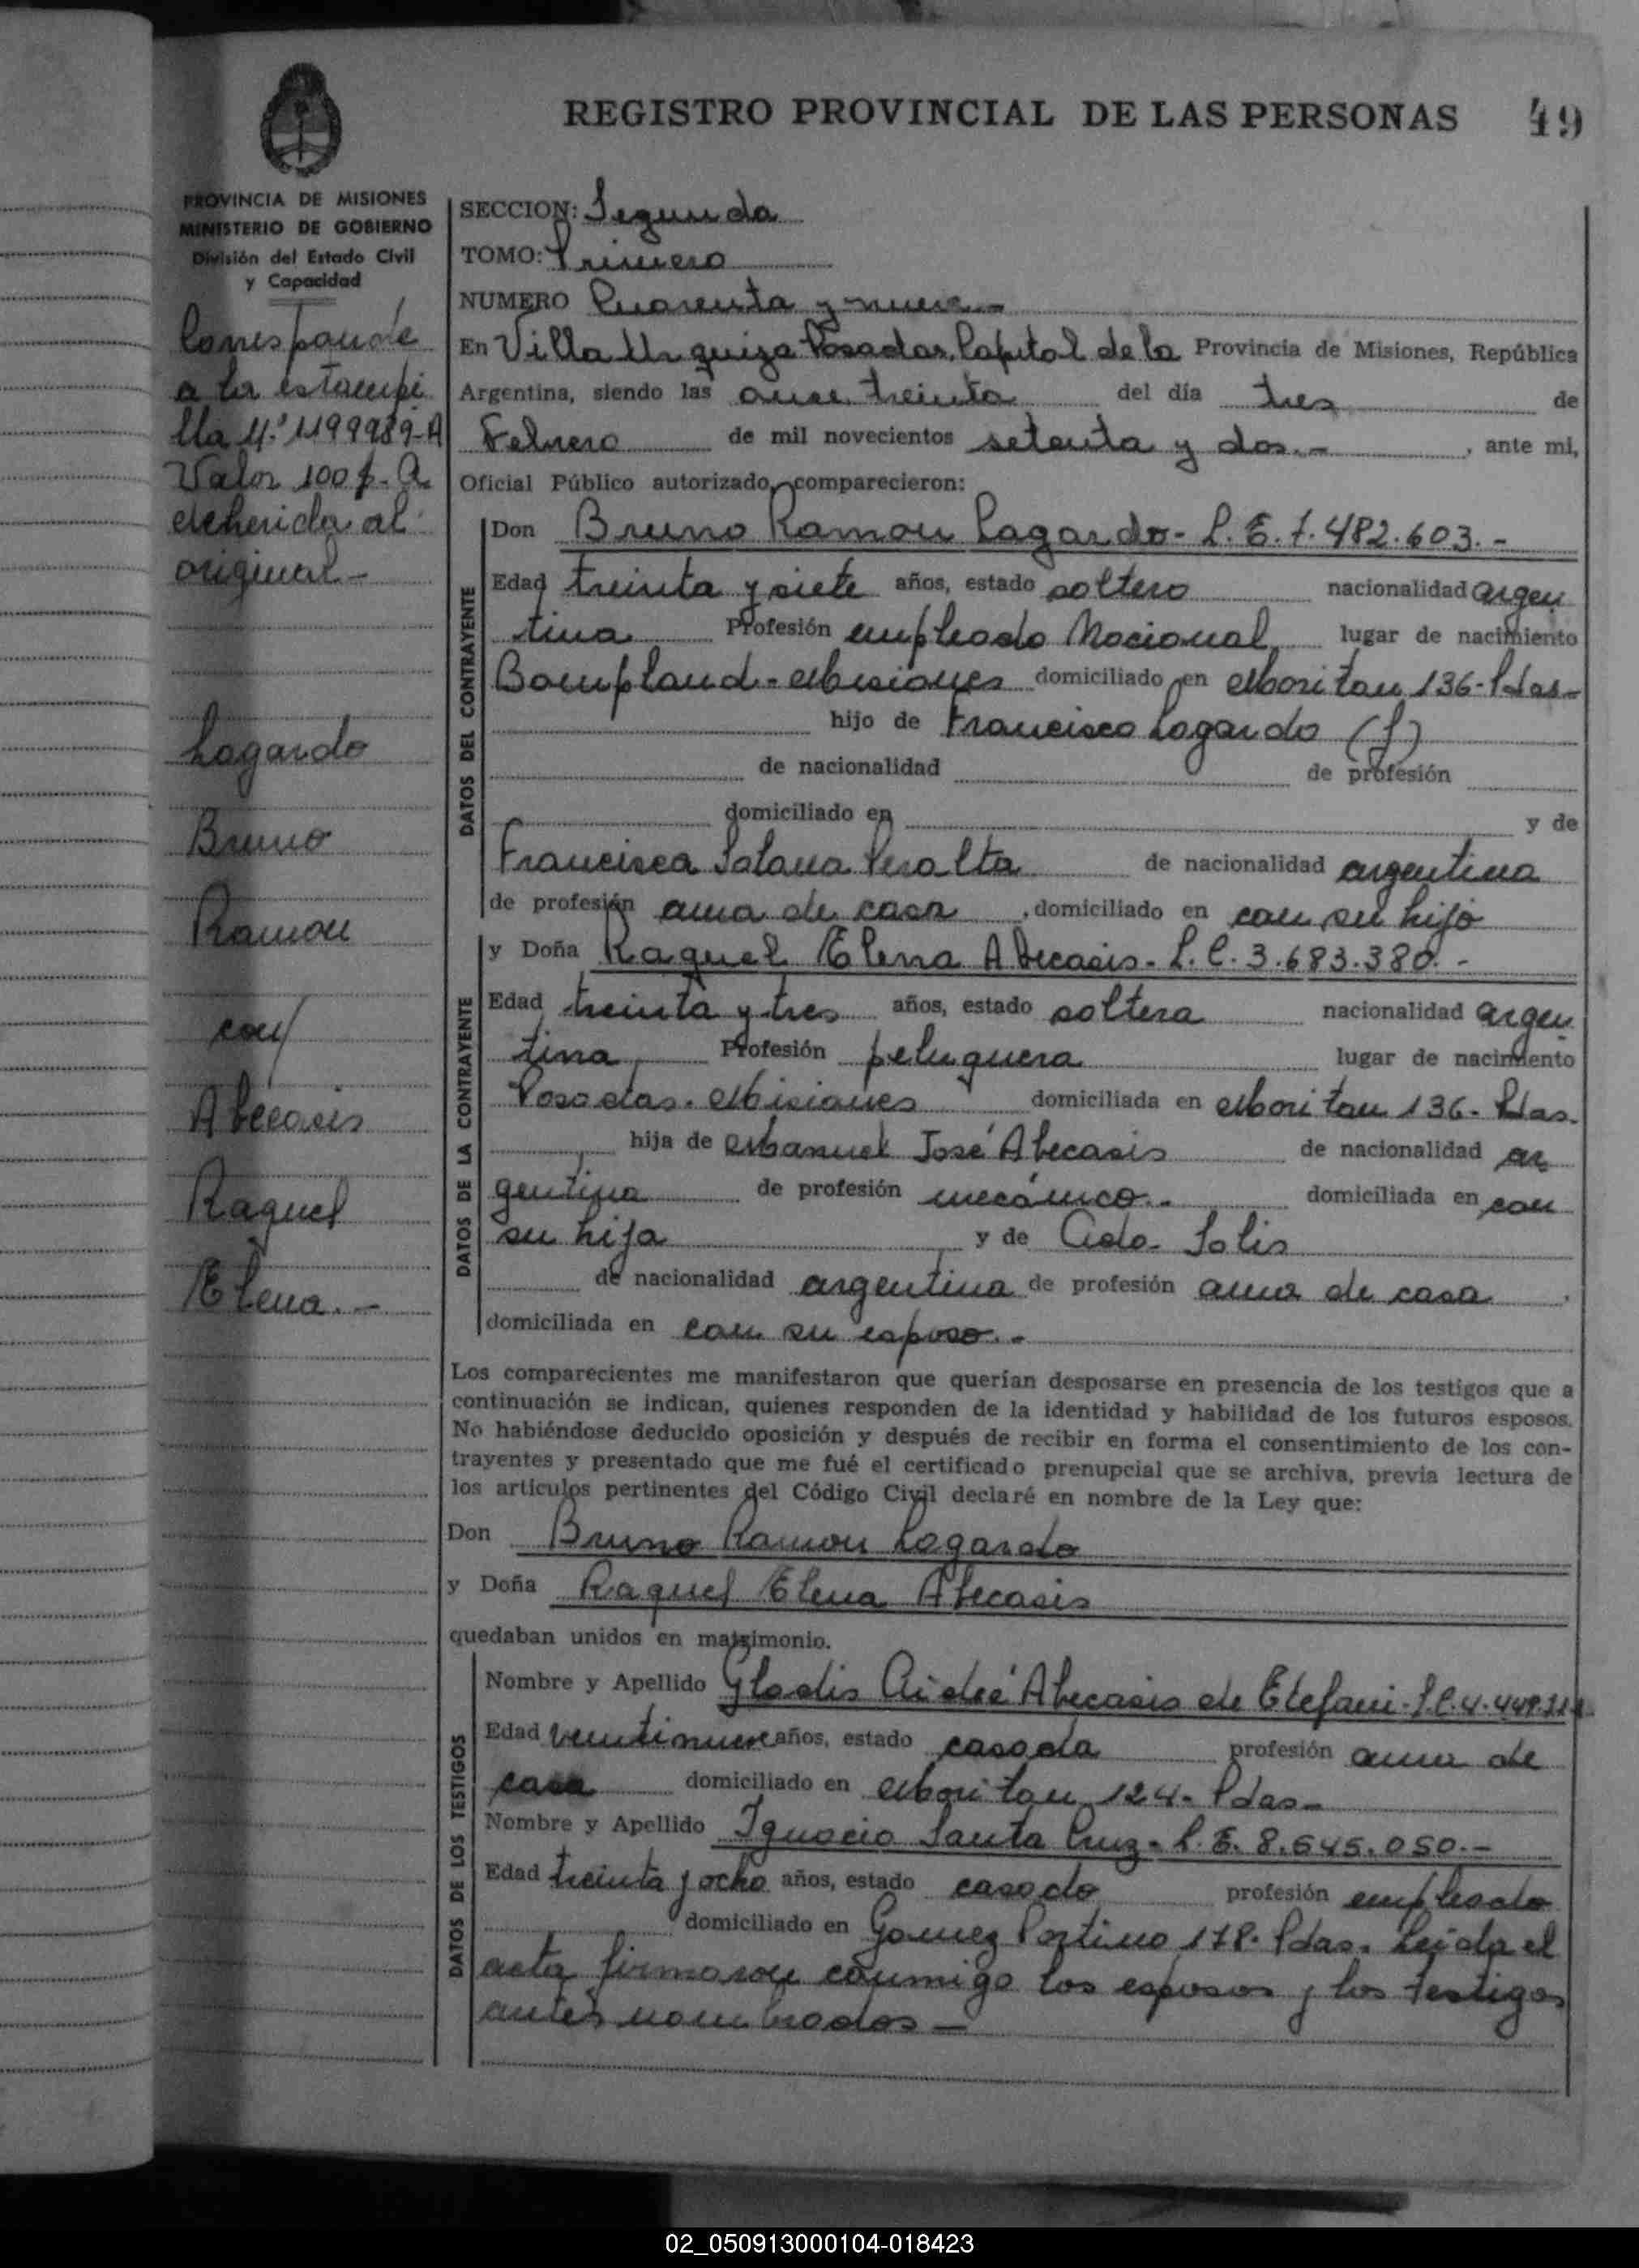 REGISTRO PROVINCIAL DE LAS PERSONAS 49
PROVINCIA DE MISIONES
MINISTERIO DE GOBIERNO
División del Estado Civil
y Capacidad
Corresponde
a la estampi
lla Nº 1199989-A
Valor 100 $. A
dherida al
original -
Lagardo
Bruno
Ramon
con/
Abecasis
Raquel
Elena. -
SECCION: Segunda
TOMO: Primero
NUMERO Cuarenta y nueve -
En Villa Urquiza Posadas, Capital de la Provincia de Misiones, República
Argentina, siendo las once treinta del día tres de
Febrero de mil novecientos setenta y dos. - , ante mi,
Oficial Público autorizado, comparecieron:
DATOS DEL CONTRAYENTE
Don Bruno Ramon Lagardo - L. E. 7.482.603. -
Edad treinta y siete años, estado soltero nacionalidad argen
tina Profesión empleado Nacional lugar de nacimiento
Bompland - Misiones domiciliado en Moritan 136 - Pdas -
hijo de Francisco Lagardo (f)
de nacionalidad de profesión
domiciliado en y de
Francisca Solana Peralta de nacionalidad argentina
de profesión ama de casa , domiciliado en con su hijo
DATOS DE LA CONTRAYENTE
y Doña Raquel Elena Abecasis - L. C. 3.683.380. -
Edad treinta y tres años, estado soltera nacionalidad argen
tina, Profesión peluquera lugar de nacimiento
Posadas. Misiones domiciliada en Moritan 136 - Pdas.
hija de Manuel José Abecasis de nacionalidad ar
gentina de profesión mecánico. - domiciliada en con
su hija y de Aida Solis
de nacionalidad argentina de profesión ama de casa ,
domiciliada en con su esposo. -
Los comparecientes me manifestaron que querían desposarse en presencia de los testigos que a
continuación se indican, quienes responden de la identidad y habilidad de los futuros esposos.
No habiéndose deducido oposición y después de recibir en forma el consentimiento de los con-
trayentes y presentado que me fué el certificado prenupcial que se archiva, previa lectura de
los articulos pertinentes del Código Civil declaré en nombre de la Ley que:
Don Bruno Ramon Lagardo
y Doña Raquel Elena Abecasis
quedaban unidos en matrimonio.
DATOS DE LOS TESTIGOS
Nombre y Apellido Gladis Aideé Abecasis de Etefani - L.C. 4.449.
Edad veintinueve años, estado casada profesión ama de
casa domiciliado en Moritan 124 - Pdas -
Nombre y Apellido Ignacio Santa Cruz - L. E. 8.645.050. -
Edad treinta y ocho años, estado casado profesión empleado
domiciliado en Gomez Portino 178 - Pdas. Leida el
acta firmaron conmigo los esposos y los testigos
antes nombrados -
02_050913000104-018423